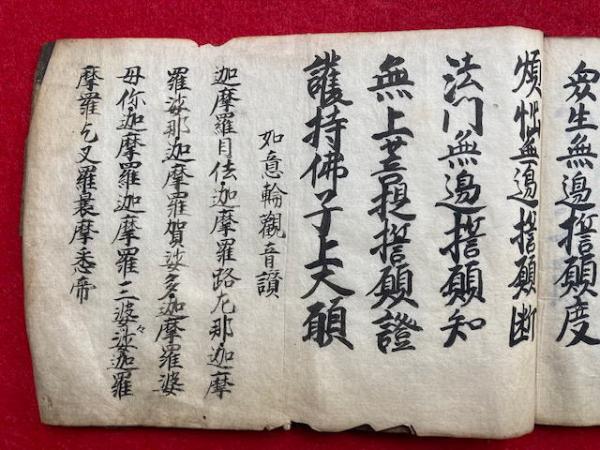 衆生無邊誓願度
煩悩無邊誓願断
法門無邊誓願知
無上菩提誓願證
護持佛子上大願
如意輪觀音讃
迦摩羅目佉迦摩羅路左那迦摩
羅娑那迦摩羅賀娑多迦摩羅婆
母你迦摩羅迦摩羅三婆々娑迦羅
摩羅乞叉羅曩摩悉帝